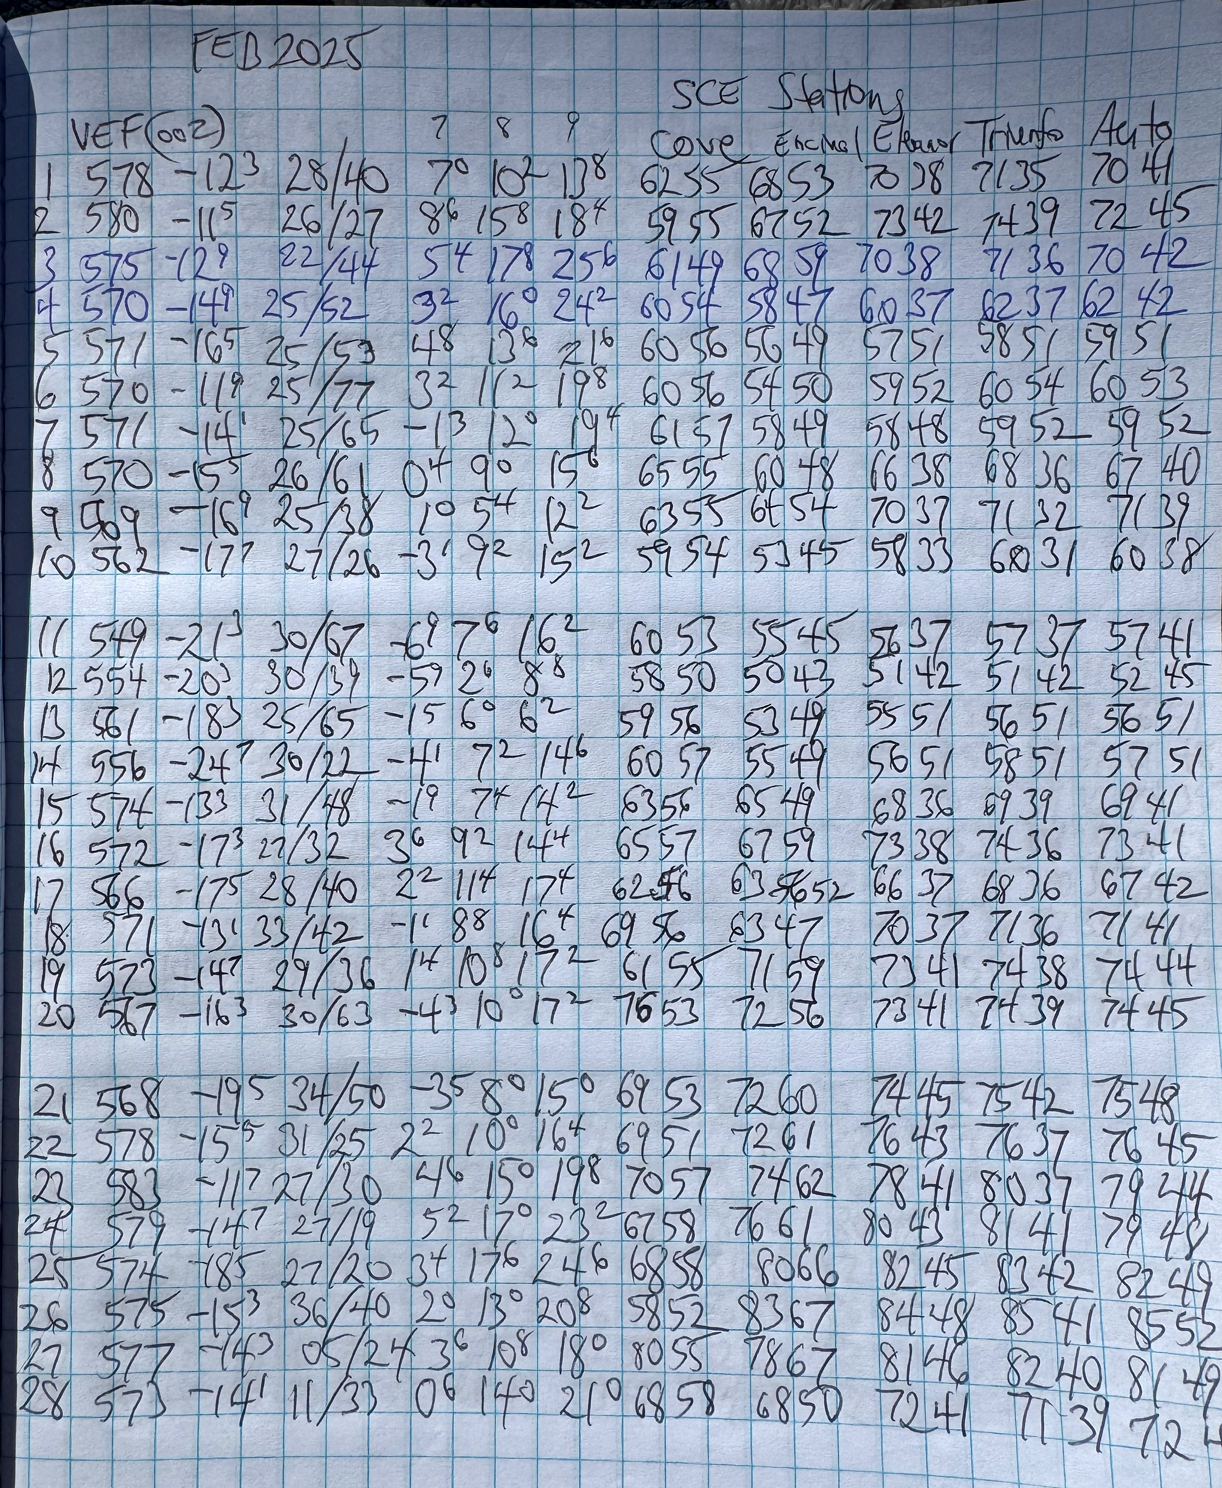 FEB 2025
SCE Stations
VEF(00Z) 7 8 9 Cove Encinal Eleanor Triunfo Auto
1 578 -12³ 28/40 7⁰ 10² 13⁸ 6255 6853 7038 7135 7041
2 580 -11⁵ 26/27 8⁶ 15⁸ 18⁴ 5955 6752 7342 7439 7245
3 575 -12⁹ 22/44 5⁴ 17⁸ 25⁶ 6149 6859 7038 7136 7042
4 570 -14⁹ 25/52 3² 16⁰ 24² 6054 5847 6037 6237 6242
5 571 -16⁵ 25/53 4⁸ 13⁶ 21⁶ 6056 5649 5751 5851 5951
6 570 -11⁹ 25/77 3² 11² 19⁸ 6056 5450 5952 6054 6053
7 571 -14¹ 25/65 -1³ 12⁰ 19⁴ 6157 5849 5848 5952 5952
8 570 -15⁵ 26/61 0⁴ 9⁰ 15⁶ 6555 6048 6638 6836 6740
9 569 -16⁹ 25/38 1⁰ 5⁴ 12² 6355 6454 7037 7132 7139
10 562 -17⁷ 27/26 -3¹ 9² 15² 5954 5345 5833 6031 6038
11 549 -21³ 30/67 -6⁹ 7⁶ 16² 6053 5545 5637 5737 5741
12 554 -20³ 30/39 -5⁹ 2⁶ 8⁸ 5850 5043 5142 5142 5245
13 561 -18³ 25/65 -1⁵ 6⁰ 6² 5956 5349 5551 5651 5651
14 556 -24⁷ 30/22 -4¹ 7² 14⁶ 6057 5549 5651 5851 5751
15 574 -13³ 31/48 -1⁹ 7⁴ 14² 6356 6549 6836 6939 6941
16 572 -17³ 27/32 3⁶ 9² 14⁴ 6557 6759 7338 7436 7341
17 566 -17⁵ 28/40 2² 11⁴ 17⁴ 6256 6352 6637 6836 6742
18 571 -13¹ 33/42 -1¹ 8⁸ 16⁴ 6956 6347 7037 7136 7141
19 573 -14⁷ 29/36 1⁴ 10⁸ 17² 6155 7159 7341 7438 7444
20 567 -16³ 30/63 -4³ 10⁰ 17² 7653 7256 7341 7439 7445
21 568 -19⁵ 34/50 -3⁵ 8⁰ 15⁰ 6953 7260 7445 7542 7548
22 578 -15⁵ 31/25 2² 10⁰ 16⁴ 6951 7261 7643 7637 7645
23 583 -11⁷ 27/30 4⁶ 15⁰ 19⁸ 7057 7462 7841 8037 7944
24 579 -14⁷ 27/19 5² 17⁰ 23² 6758 7661 8043 8141 7948
25 574 -18⁵ 27/20 3⁴ 17⁶ 24⁶ 6858 8066 8245 8342 8249
26 575 -15³ 36/40 2⁰ 13⁰ 20⁸ 5852 8367 8448 8541 8552
27 577 -14³ 05/24 3⁶ 10⁸ 18⁰ 8055 7867 8146 8240 8149
28 573 -14¹ 11/33 0⁶ 14⁰ 21⁰ 6858 6850 7241 7139 724